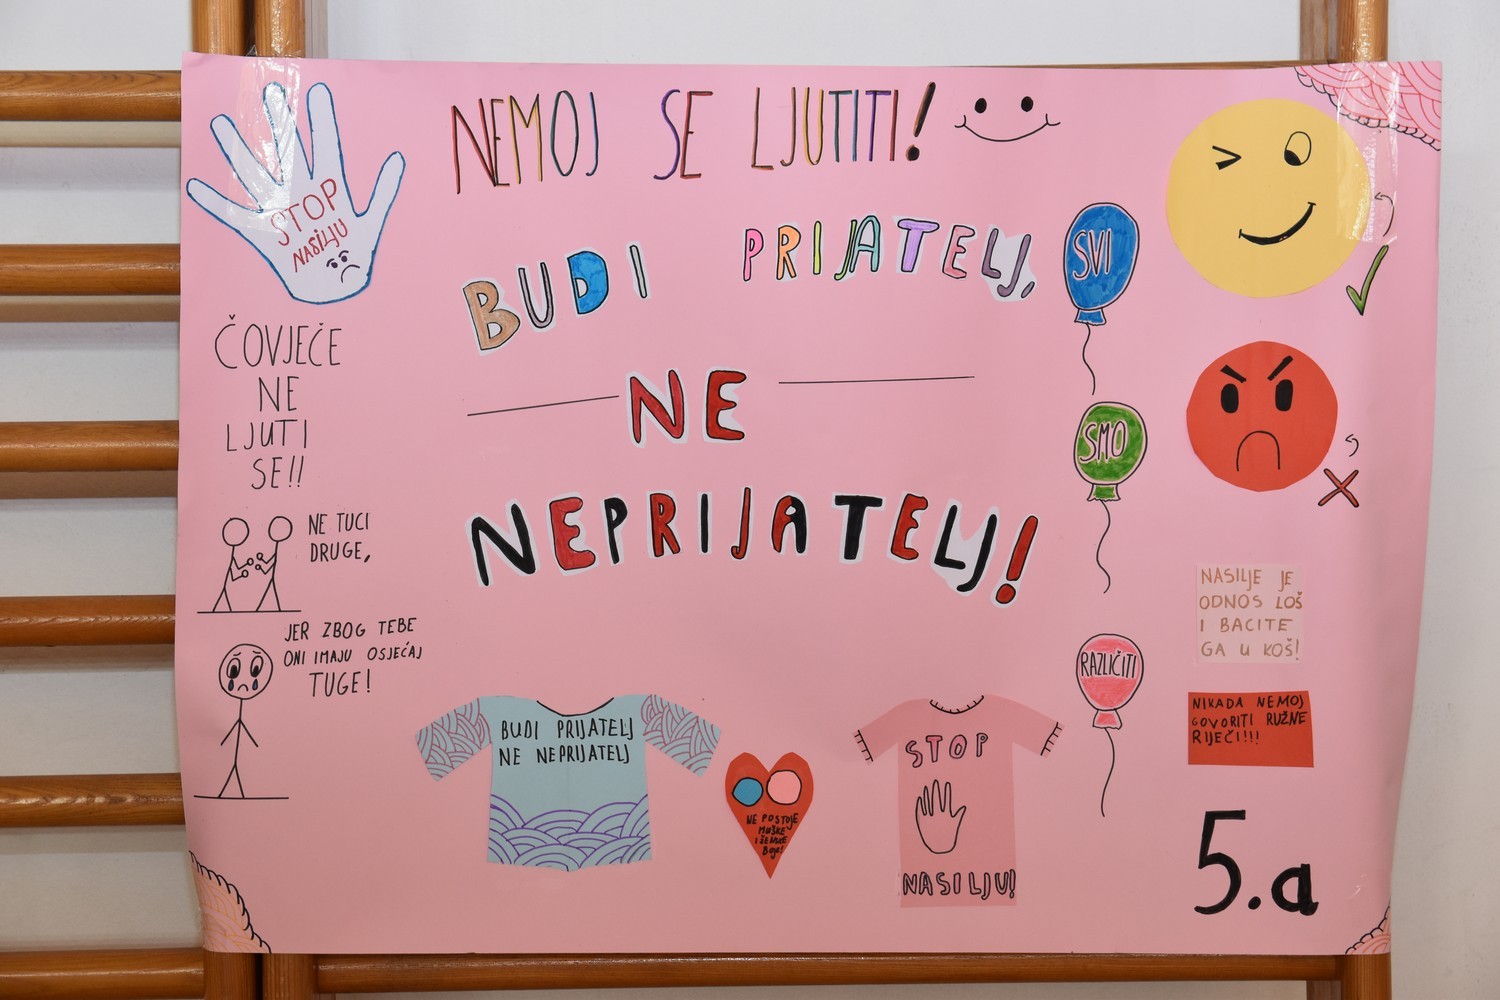 NEMOJ SE LJUTITI!
STOP
NASILJU
BUDI PRIJATELJ,
NE
NEPRIJATELJ!
ČOVJEČE
NE
LJUTI
SE!!
NE TUCI
DRUGE,
JER ZBOG TEBE
ONI IMAJU OSJEĆAJ
TUGE!
SVI
SMO
RAZLIČITI
NASILJE JE
ODNOS LOŠ
I BACITE
GA U KOŠ!
NIKADA NEMOJ
GOVORITI RUŽNE
RIJEČI!!!
BUDI PRIJATELJ
NE NEPRIJATELJ
NE POSTOJE
MUŠKE
I ŽENSKE
Boje!
STOP
NASILJU!
5.a